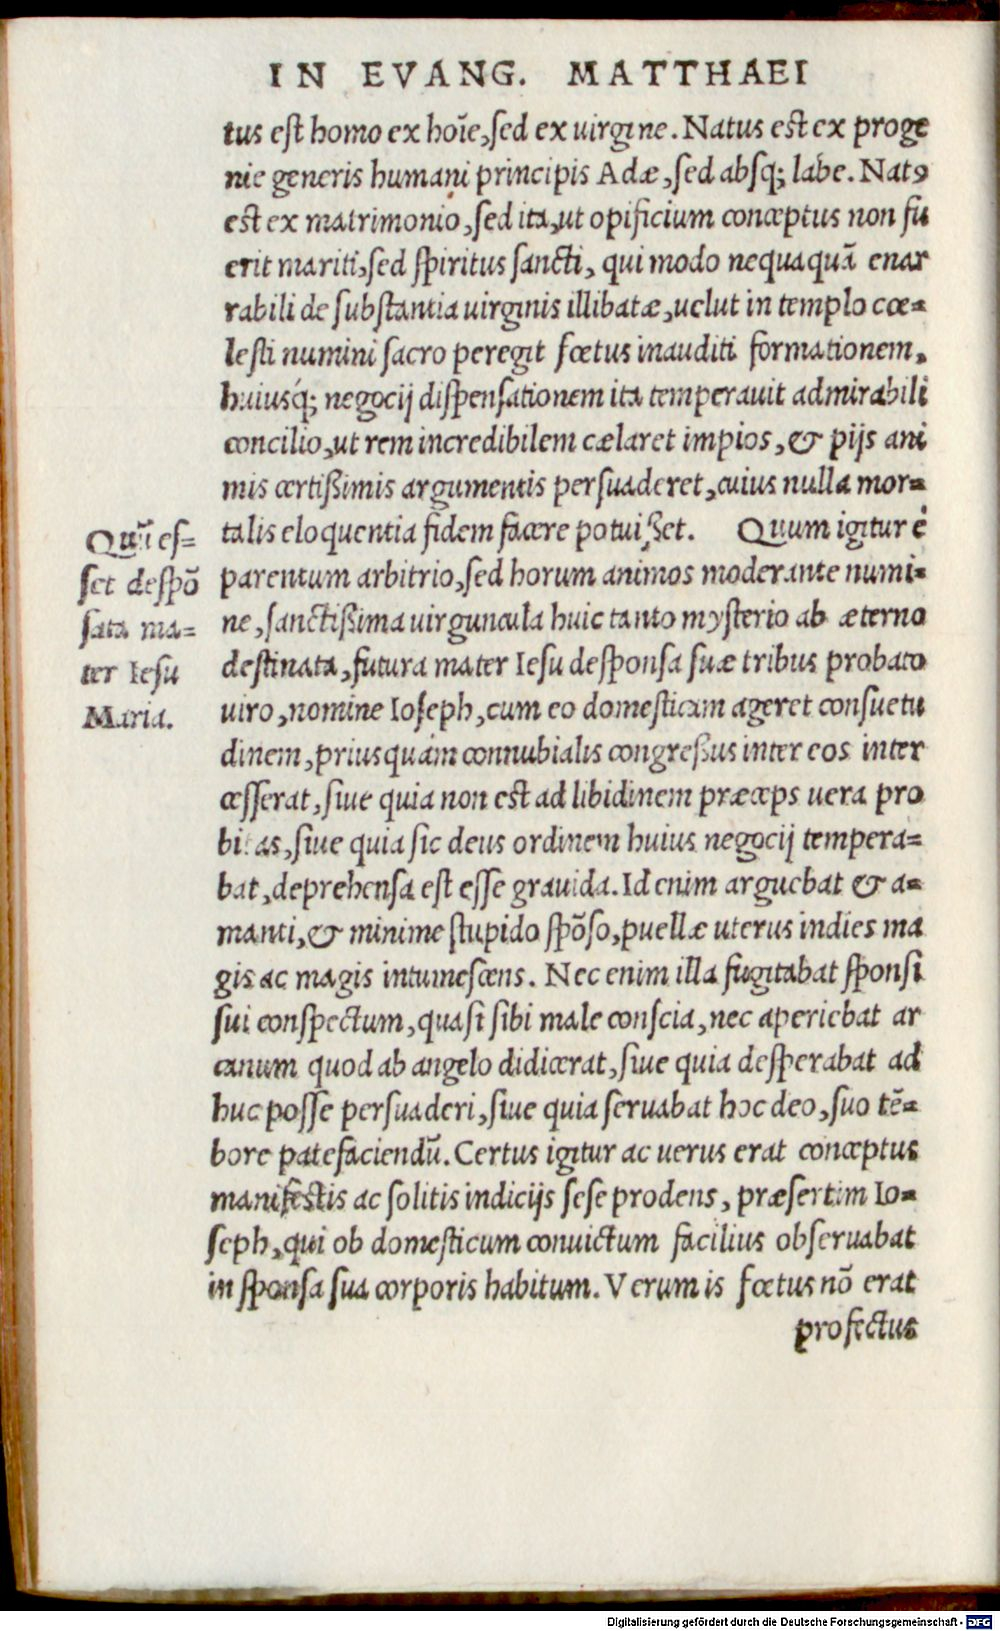 IN EVANG. MATTHAEI
tus eſt homo ex hoīe, ſed ex uirgine. Natus est ex proge
nie generis humani principis Adæ, ſed absq; labe. Natꝰ
est ex matrimonio, ſed ita, ut opificium conceptus non fu
erit mariti, ſed ſpiritus ſancti, qui modo nequaquā enar
rabili de ſubſtantia uirginis illibatæ, uelut in templo cœ=
leſti numini ſacro peregit fœtus inauditi formationem,
huiusq́; negocij diſpenſationem ita temperauit admirabili
concilio, ut rem incredibilem cælaret impios, & pijs ani
mis certißimis argumentis perſuaderet, cuius nulla mor=
talis eloquentia fidem facere potuißet. Quum igitur è
parentum arbitrio, ſed horum animos moderante numi=
ne, ſanctißima uirguncula huic tanto myſterio ab æterno
deſtinata, futura mater Ieſu deſponſa ſuæ tribus probato
uiro, nomine Ioſeph, cum eo domeſticam ageret conſuetu
dinem, priusquàm connubialis congreßus inter eos inter
ceſſerat, ſiue quia non est ad libidinem præceps uera pro
bitas, ſiue quia ſic deus ordinem huius negocij tempera=
bat, deprehenſa est eſſe grauida. Id enim arguebat & a=
manti, & minime ſtupido ſpōſo, puellæ uterus indies ma
gis ac magis intumeſcens. Nec enim illa fugitabat ſponſi
ſui conſpectum, quaſi ſibi male conſcia, nec aperiebat ar
canum quod ab angelo didicerat, ſiue quia deſperabat ad
huc poſſe perſuaderi, ſiue quia ſeruabat hoc deo, ſuo tē=
bore patefaciendū. Certus igitur ac uerus erat conceptus
manifeſtis ac ſolitis indicijs ſeſe prodens, præſertim Io=
ſeph, qui ob domeſticum conuictum facilius obſeruabat
in ſponſa ſua corporis habitum. Verum is fœtus nō erat
profectus
Quū eſ=
ſet deſpō
ſata ma=
ter Ieſu
Maria.
Digitalisierung gefördert durch die Deutsche Forschungsgemeinschaft - DFG